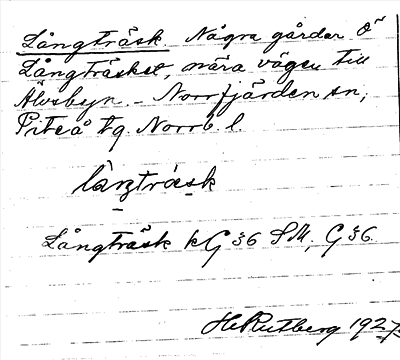 Långträsk. Några gårdar Ö
Långträsket, nära vägen till
Älvsbyn. - Norrfjärden sn,
Piteå tg. Norrb. l.
långträsk
Långträsk kG 36 SM, G 36.
H. Rutberg 1927